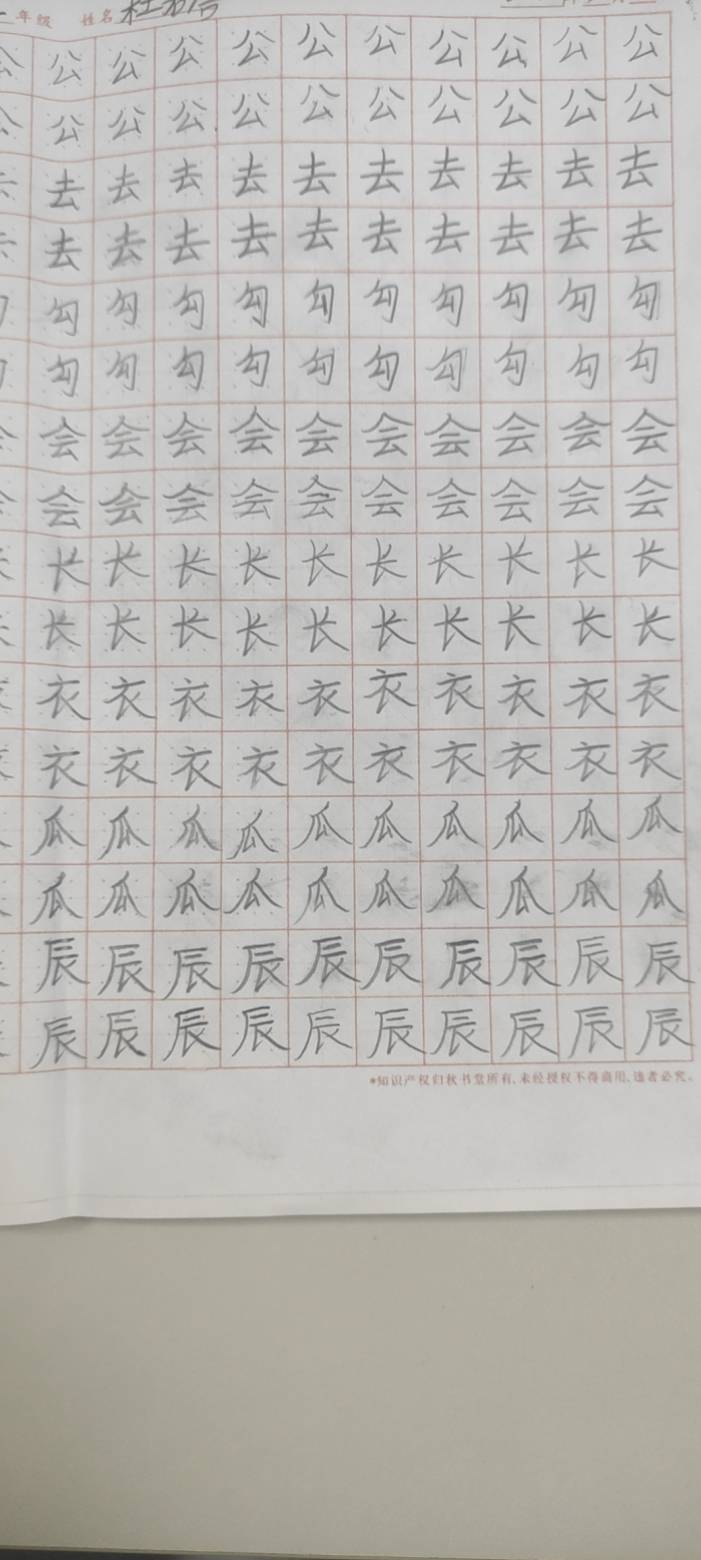 年级 姓名 杜
公公公公公公公公公公
公公公公公公公公公公
去去去去去去去去去去
去去去去去去去去去去
勾勾勾勾勾勾勾勾勾勾
勾勾勾勾勾勾勾勾勾勾
会会会会会会会会会会
会会会会会会会会会会
长长长长长长长长长长
长长长长长长长长长长
衣衣衣衣衣衣衣衣衣衣
衣衣衣衣衣衣衣衣衣衣
瓜瓜瓜瓜瓜瓜瓜瓜瓜瓜
瓜瓜瓜瓜瓜瓜瓜瓜瓜瓜
辰辰辰辰辰辰辰辰辰辰
辰辰辰辰辰辰辰辰辰辰
*知识产权归秋书堂所有,未经授权不得商用,违者必究。